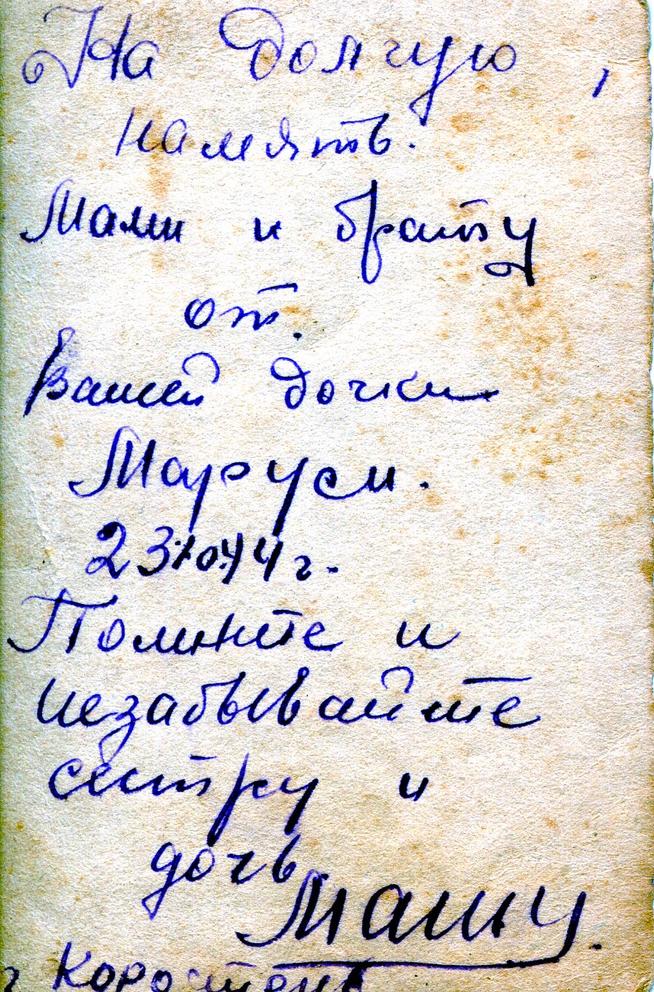 На долгую
память.
Мами и брату
от.
Вашей дочки
Маруси.
23/10.44 г.
Помните и
незабывайте
сестру и
дочь
Машу.
г Коростень